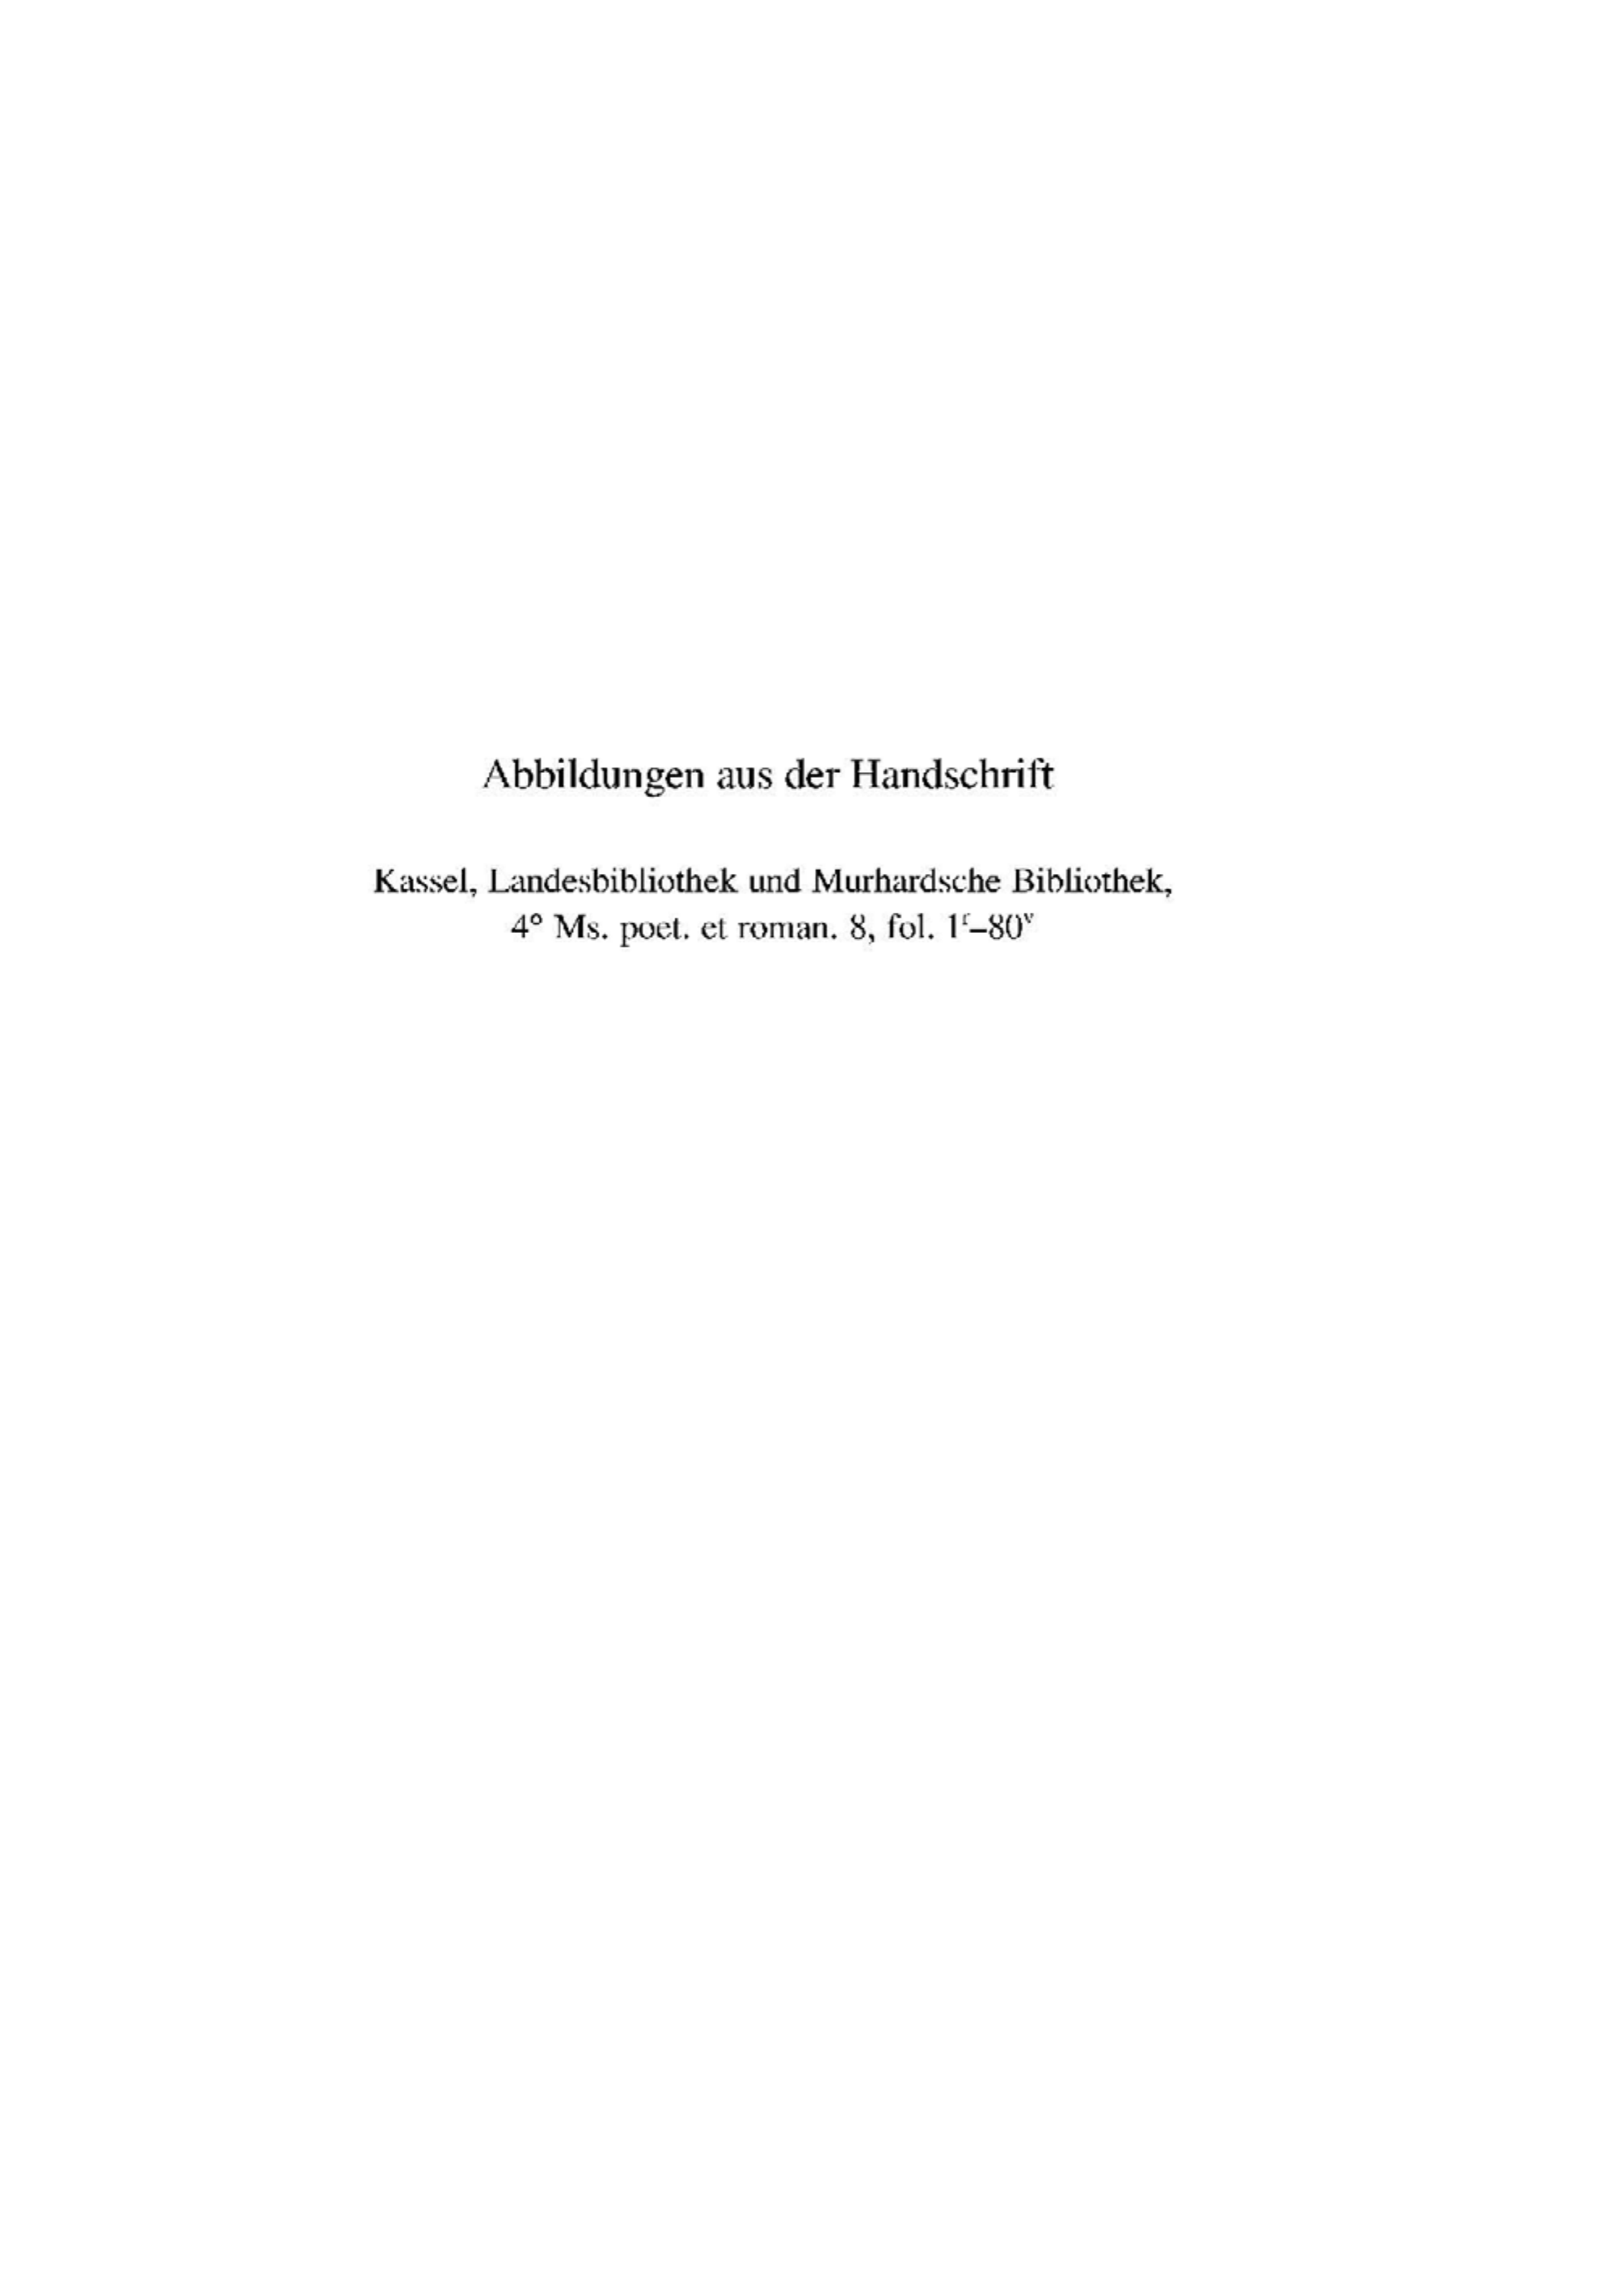 Abbildungen aus der Handschrift
Kassel, Landesbibliothek und Murhardsche Bibliothek,
4° Ms. poet. et roman. 8, fol. 1ʳ–80ᵛ